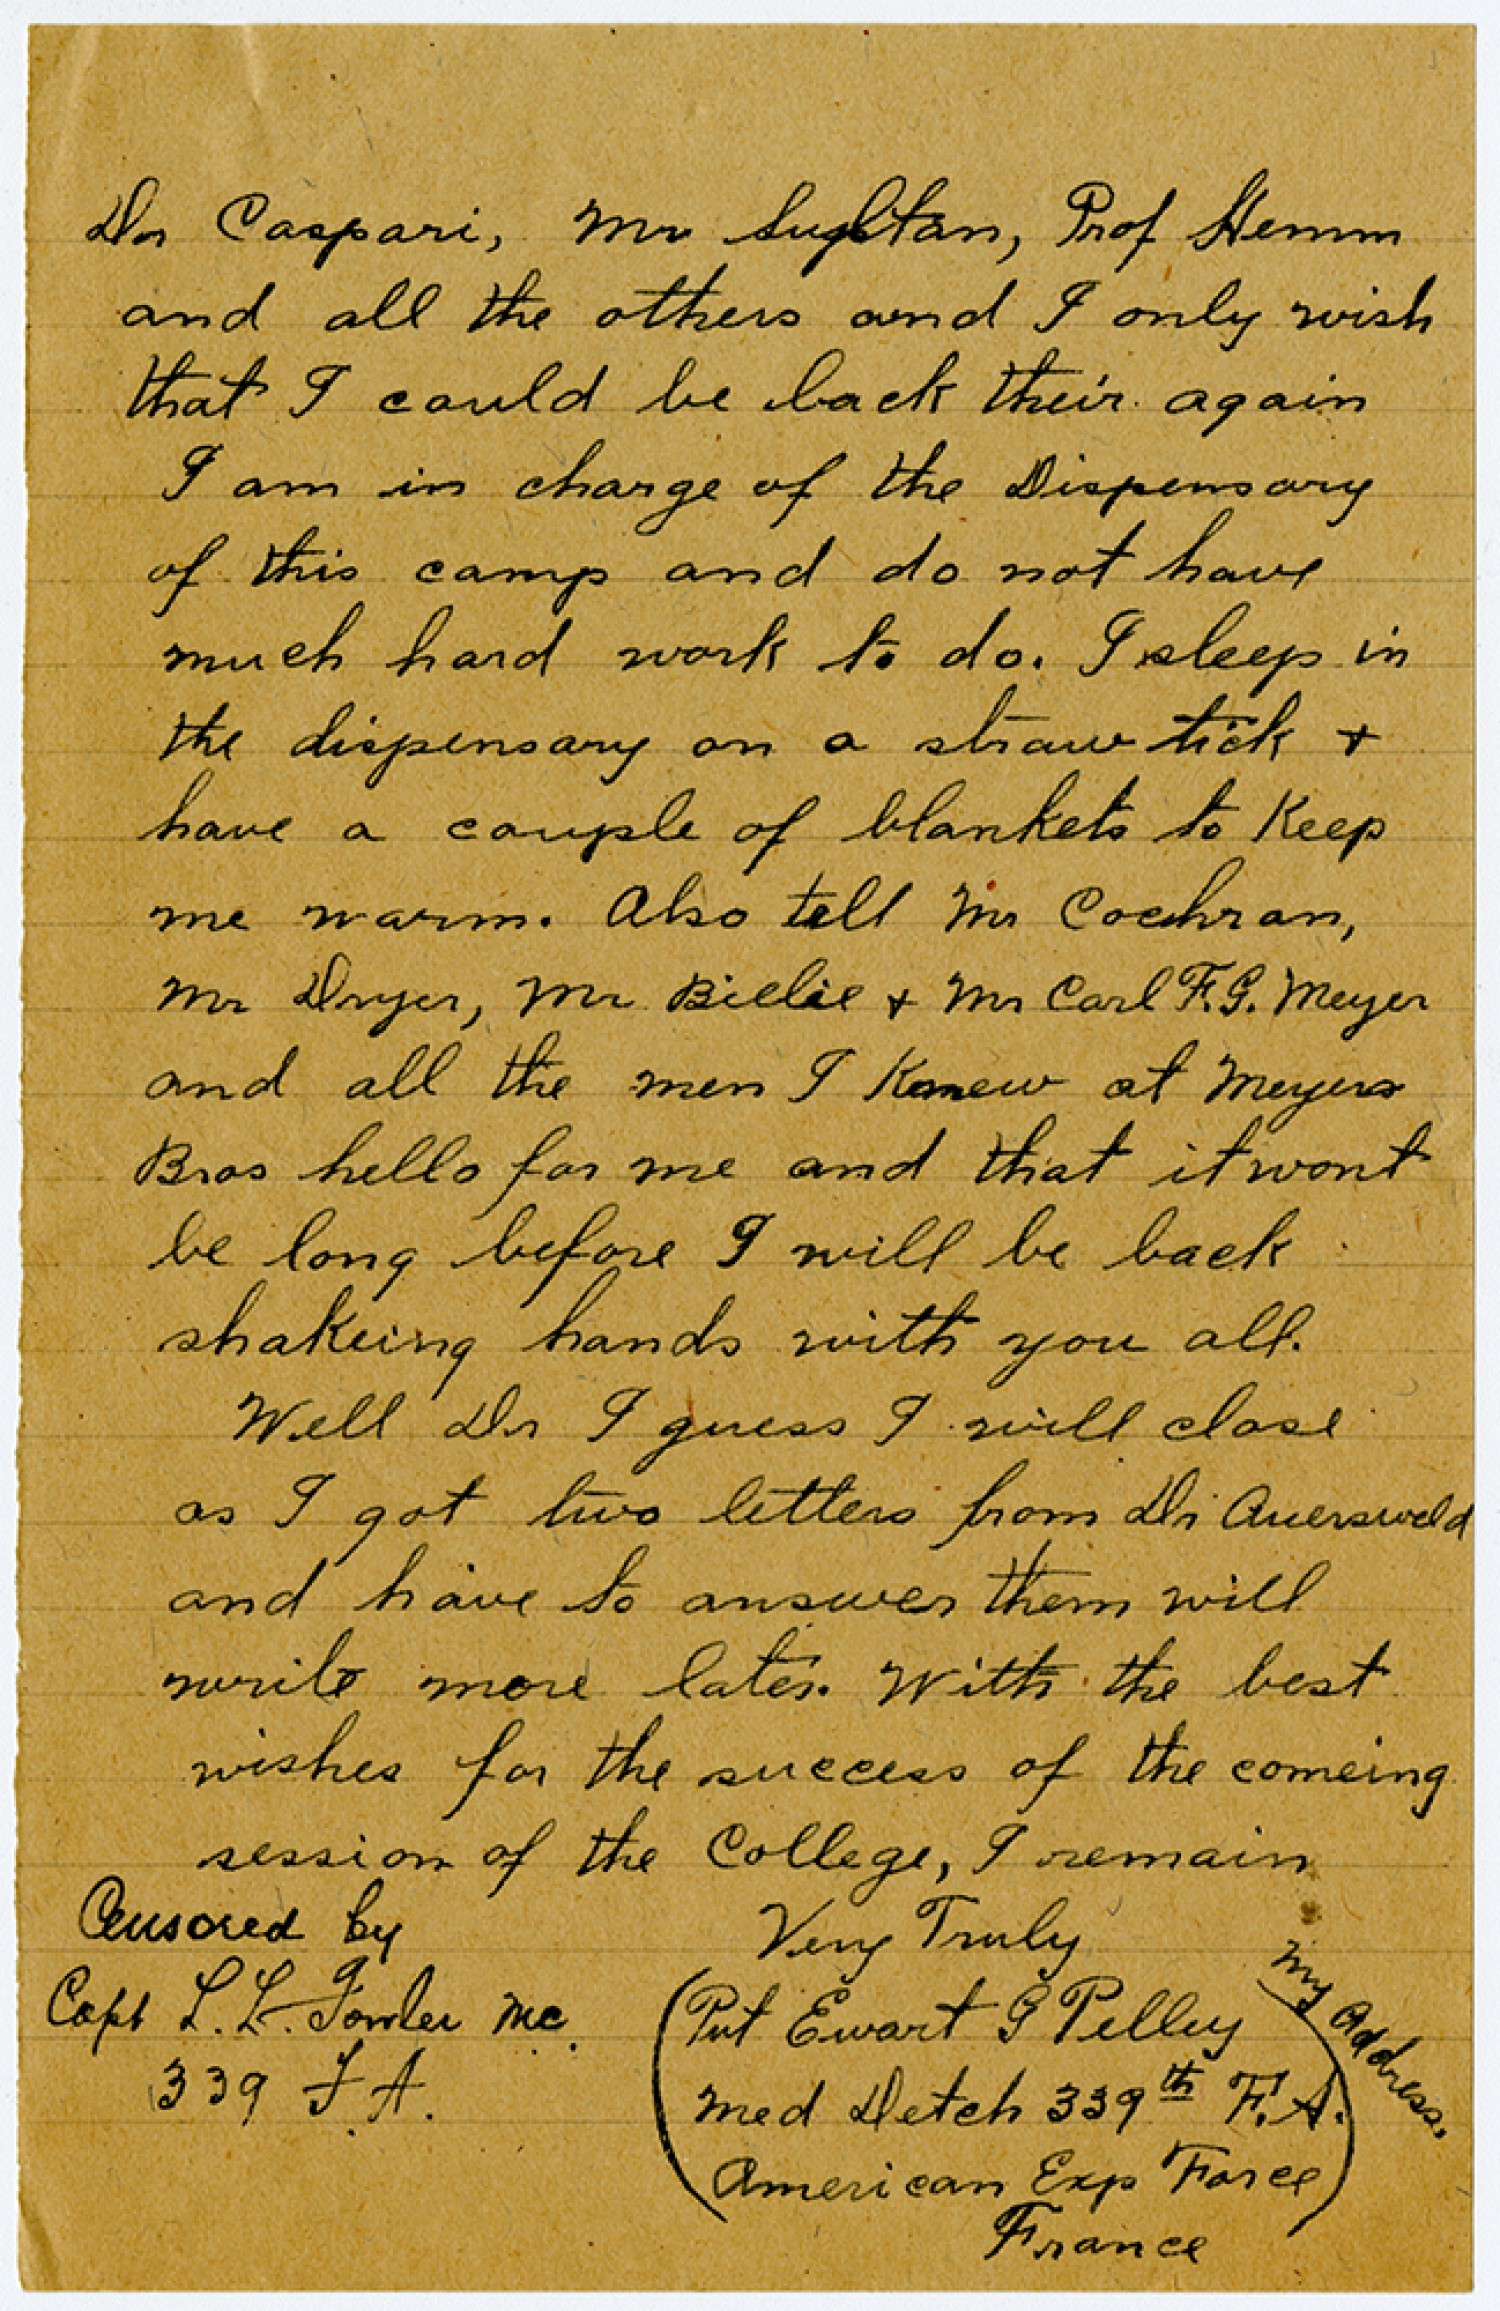 Dr Caspari, Mr Sughtan, Prof Hemm
and all the others and I only wish
that I could be back their again
I am in charge of the Dispensary
of this camp and do not have
much hard work to do. I sleep in
the dispensary on a straw tick +
have a couple of blankets to Keep
me warm. Also tell Mr Cochran,
Mr Dryer, Mr Bielie + Mr Carl F.G. Meyer
and all the men I Knew at Meyers
Bros hello for me and that it wont
be long before I will be back
shakeing hands with you all.
Well Dr I guess I will close
as I got two letters from Dr Auerswald
and have to answer them will
write more later. With the best
wishes for the success of the comeing
session of the College, I remain
Very Truly
Censored by
Capt L. L. Fowler MC.
339 F.A.
My Address.
(Pvt Ewart G Pelley
Med Detch 339th F.A.
American Exp Force)
France